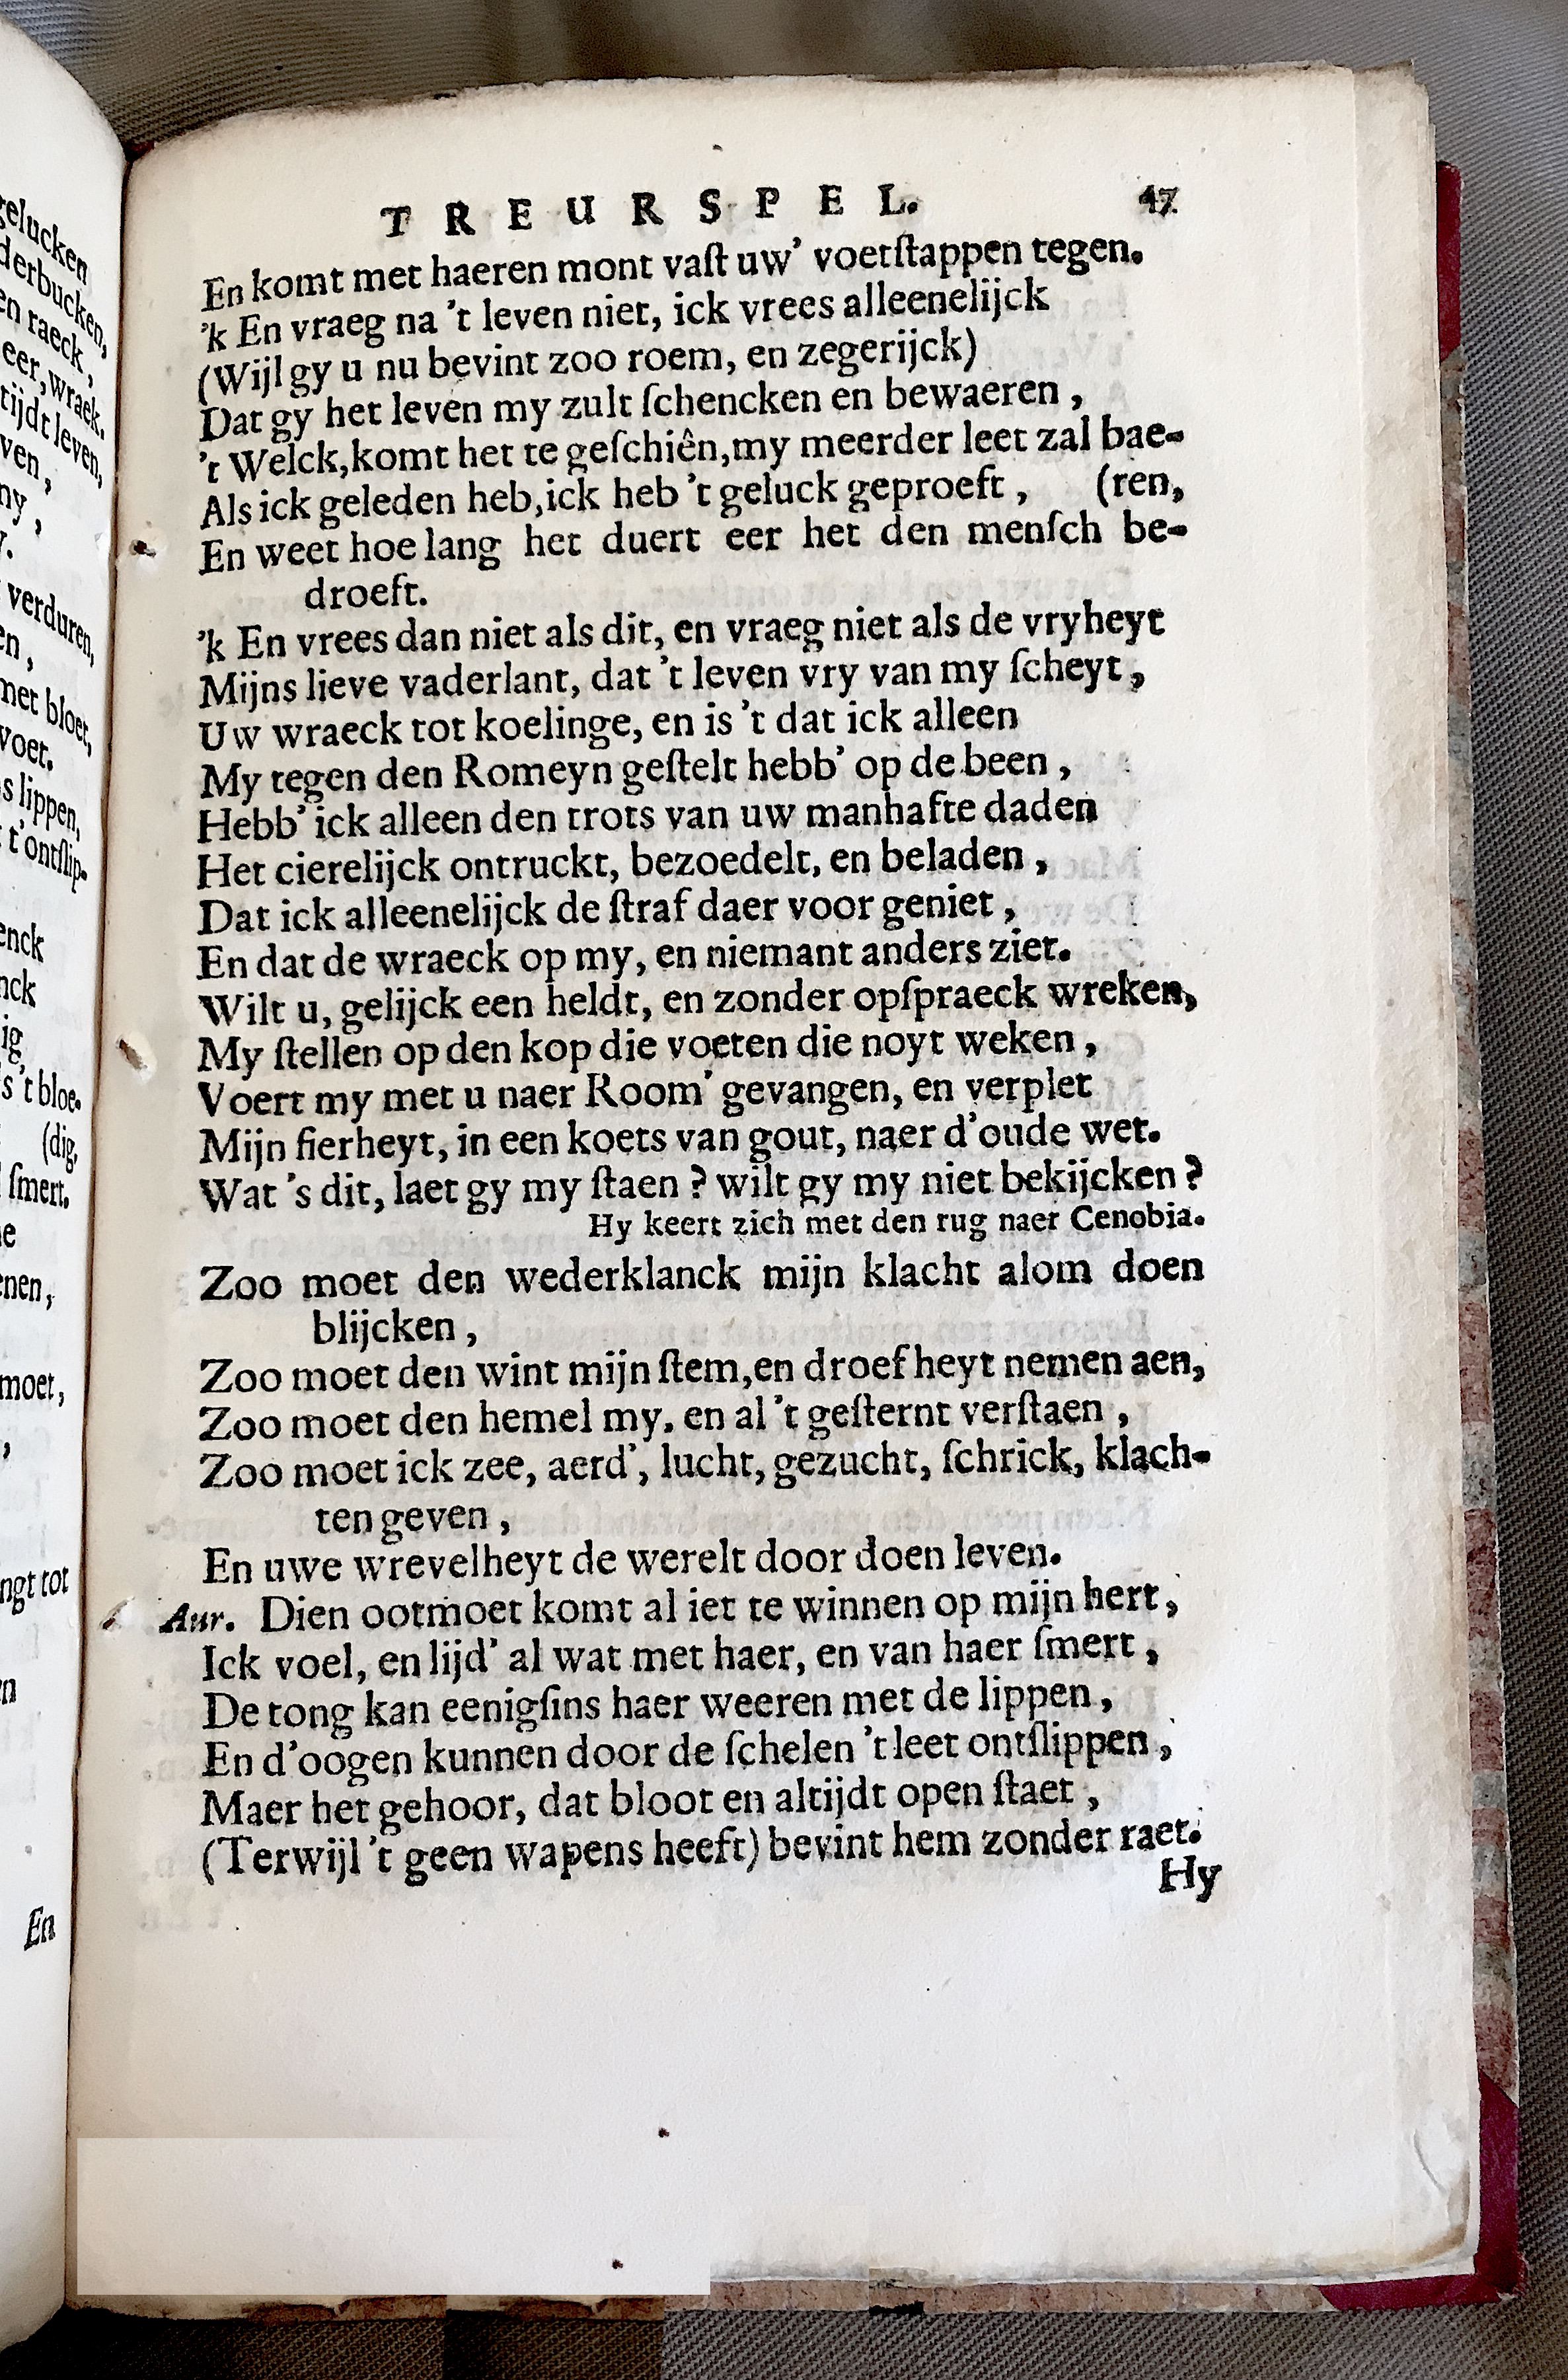 TREURSPEL. 47
En komt met haeren mont vaſt uw' voetſtappen tegen.
'k En vraeg na 't leven niet, ick vrees alleenelijck
(Wijl gy u nu bevint zoo roem, en zegerijck)
Dat gy het leven my zult ſchencken en bewaeren,
't Welck, komt het te geſchiên, my meerder leet zal bae-
Als ick geleden heb, ick heb 't geluck geproeft, (ren,
En weet hoe lang het duert eer het den menſch be-
droeft.
'k En vrees dan niet als dit, en vraeg niet als de vryheyt
Mijns lieve vaderlant, dat 't leven vry van my ſcheyt,
Uw wraeck tot koelinge, en is 't dat ick alleen
My tegen den Romeyn geſtelt hebb' op de been,
Hebb' ick alleen den trots van uw manhafte daden
Het cierelijck ontruckt, bezoedelt, en beladen,
Dat ick alleenelijck de ſtraf daer voor geniet,
En dat de wraeck op my, en niemant anders ziet.
Wilt u, gelijck een heldt, en zonder opſpraeck wreken,
My ſtellen op den kop die voeten die noyt weken,
Voert my met u naer Room' gevangen, en verplet
Mijn fierheyt, in een koets van gout, naer d'oude wet.
Wat 's dit, laet gy my ſtaen? wilt gy my niet bekijcken?
Hy keert zich met den rug naer Cenobia.
Zoo moet den wederklanck mijn klacht alom doen
blijcken,
Zoo moet den wint mijn ſtem, en droefheyt nemen aen,
Zoo moet den hemel my, en al 't geſternt verſtaen,
Zoo moet ick zee, aerd', lucht, gezucht, ſchrick, klach-
ten geven,
En uwe wrevelheyt de werelt door doen leven.
Aur. Dien ootmoet komt al iet te winnen op mijn hert,
Ick voel, en lijd' al wat met haer, en van haer ſmert,
De tong kan eenigſins haer weeren met de lippen,
En d'oogen kunnen door de ſchelen 't leet ontſlippen,
Maer het gehoor, dat bloot en altijdt open ſtaet,
(Terwijl 't geen wapens heeft) bevint hem zonder raet.
Hy
gelucken
derbucken,
en raeck,
eer, wraek.
tijdt leven,
ven,
ny,
verduren,
en,
met bloet,
voet.
s lippen,
t'ontſlip-
enck
nck
ig
s 't bloe-
(dig,
ſmert.
e
enen,
moet,
ngt tot
n
En